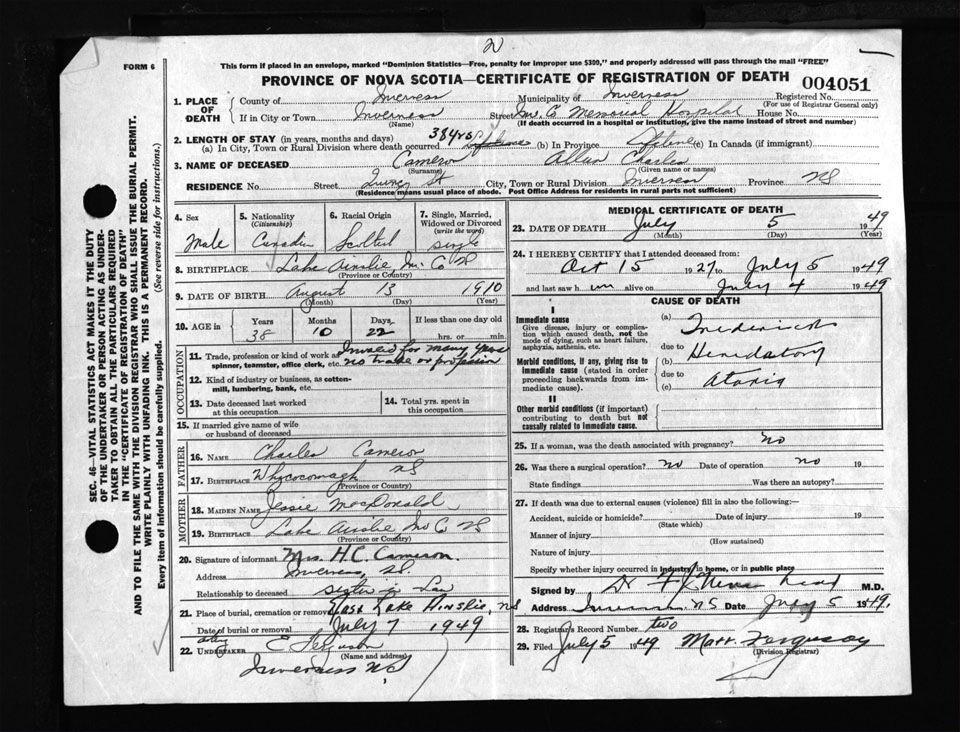 2
FORM 6
This form if placed in an envelope, marked "Dominion Statistics—Free, penalty for improper use $300," and properly addressed will pass through the mail "FREE"
PROVINCE OF NOVA SCOTIA—CERTIFICATE OF REGISTRATION OF DEATH 004051
1. PLACE OF DEATH
County of Inverness Municipality of Inverness Registered No.
(For use of Registrar General only)
If in City or Town Inverness Street Inv. Co Memorial Hospital House No.
(Name) (If death occurred in a hospital or institution, give the name instead of street and number)
2. LENGTH OF STAY (in years, months and days)
(a) In City, Town or Rural Division where death occurred 38 yrs (b) In Province (c) In Canada (if immigrant)
3. NAME OF DECEASED Cameron Allan Charles
(Surname) (Given name or names)
RESIDENCE No. Street Quincy St City, Town or Rural Division Inverness Province NS
(Residence means usual place of abode. Post Office Address for residents in rural parts not sufficient)
4. Sex Male
5. Nationality (Citizenship) Canadian
6. Racial Origin Scottish
7. Single, Married, Widowed or Divorced (write the word) single
8. BIRTHPLACE Lake Ainslie, Inv. Co NS
(Province or Country)
9. DATE OF BIRTH August 13 1910
(Month) (Day) (Year)
10. AGE in Years Months Days If less than one day old
38 10 22 hrs. or min.
OCCUPATION
11. Trade, profession or kind of work as spinner, teamster, office clerk, etc. Invalid for many years no trade or profession
12. Kind of industry or business, as cotton-mill, lumbering, bank, etc.
13. Date deceased last worked at this occupation
14. Total yrs. spent in this occupation
15. If married give name of wife or husband of deceased
FATHER
16. NAME Charles Cameron
17. BIRTHPLACE Whycocomagh NS
(Province or Country)
MOTHER
18. MAIDEN NAME Jessie MacDonald
19. BIRTHPLACE Lake Ainslie Inv Co NS
(Province or Country)
20. Signature of informant Mrs. H.C. Cameron
Address Inverness, NS.
Relationship to deceased Sister in Law
21. Place of burial, cremation or removal East Lake Ainslie, NS
Date of burial or removal July 7 1949
22. UNDERTAKER C Ferguson
(Name and address)
Inverness NS
MEDICAL CERTIFICATE OF DEATH
23. DATE OF DEATH July 5 1949
(Month) (Day) (Year)
24. I HEREBY CERTIFY that I attended deceased from:
Oct 15 1927 to July 5 1949
and last saw him alive on July 4 1949
CAUSE OF DEATH
I
Immediate cause
Give disease, injury or complication which caused death, not the mode of dying, such as heart failure, asphyxia, asthenia, etc.
(a) Frederick
due to
Morbid conditions, if any, giving rise to immediate cause (stated in order proceeding backwards from immediate cause).
(b) Heredatory
due to
(c) Ataxia
II
Other morbid conditions (if important) contributing to death but not causally related to immediate cause.
25. If a woman, was the death associated with pregnancy? no
26. Was there a surgical operation? no Date of operation no 19
State findings Was there an autopsy?
27. If death was due to external causes (violence) fill in also the following:—
Accident, suicide or homicide? Date of injury 19
(State which)
Manner of injury
(How sustained)
Nature of injury
Specify whether injury occurred in industry, in home, or in public place
Signed by Dr M.D.
Address Inverness NS Date July 5 1949.
28. Registrar's Record Number two
29. Filed July 5 1949 Matt. Ferguson
(Division Registrar)
SEC. 46—VITAL STATISTICS ACT MAKES IT THE DUTY
OF THE UNDERTAKER OR PERSON ACTING AS UNDER-
TAKER TO OBTAIN ALL THE PARTICULARS REQUIRED
IN THE "CERTIFICATE OF REGISTRATION OF DEATH"
AND TO FILE THE SAME WITH THE DIVISION REGISTRAR WHO SHALL ISSUE THE BURIAL PERMIT.
WRITE PLAINLY WITH UNFADING INK. THIS IS A PERMANENT RECORD.
Every item of information should be carefully supplied. (See reverse side for instructions.)